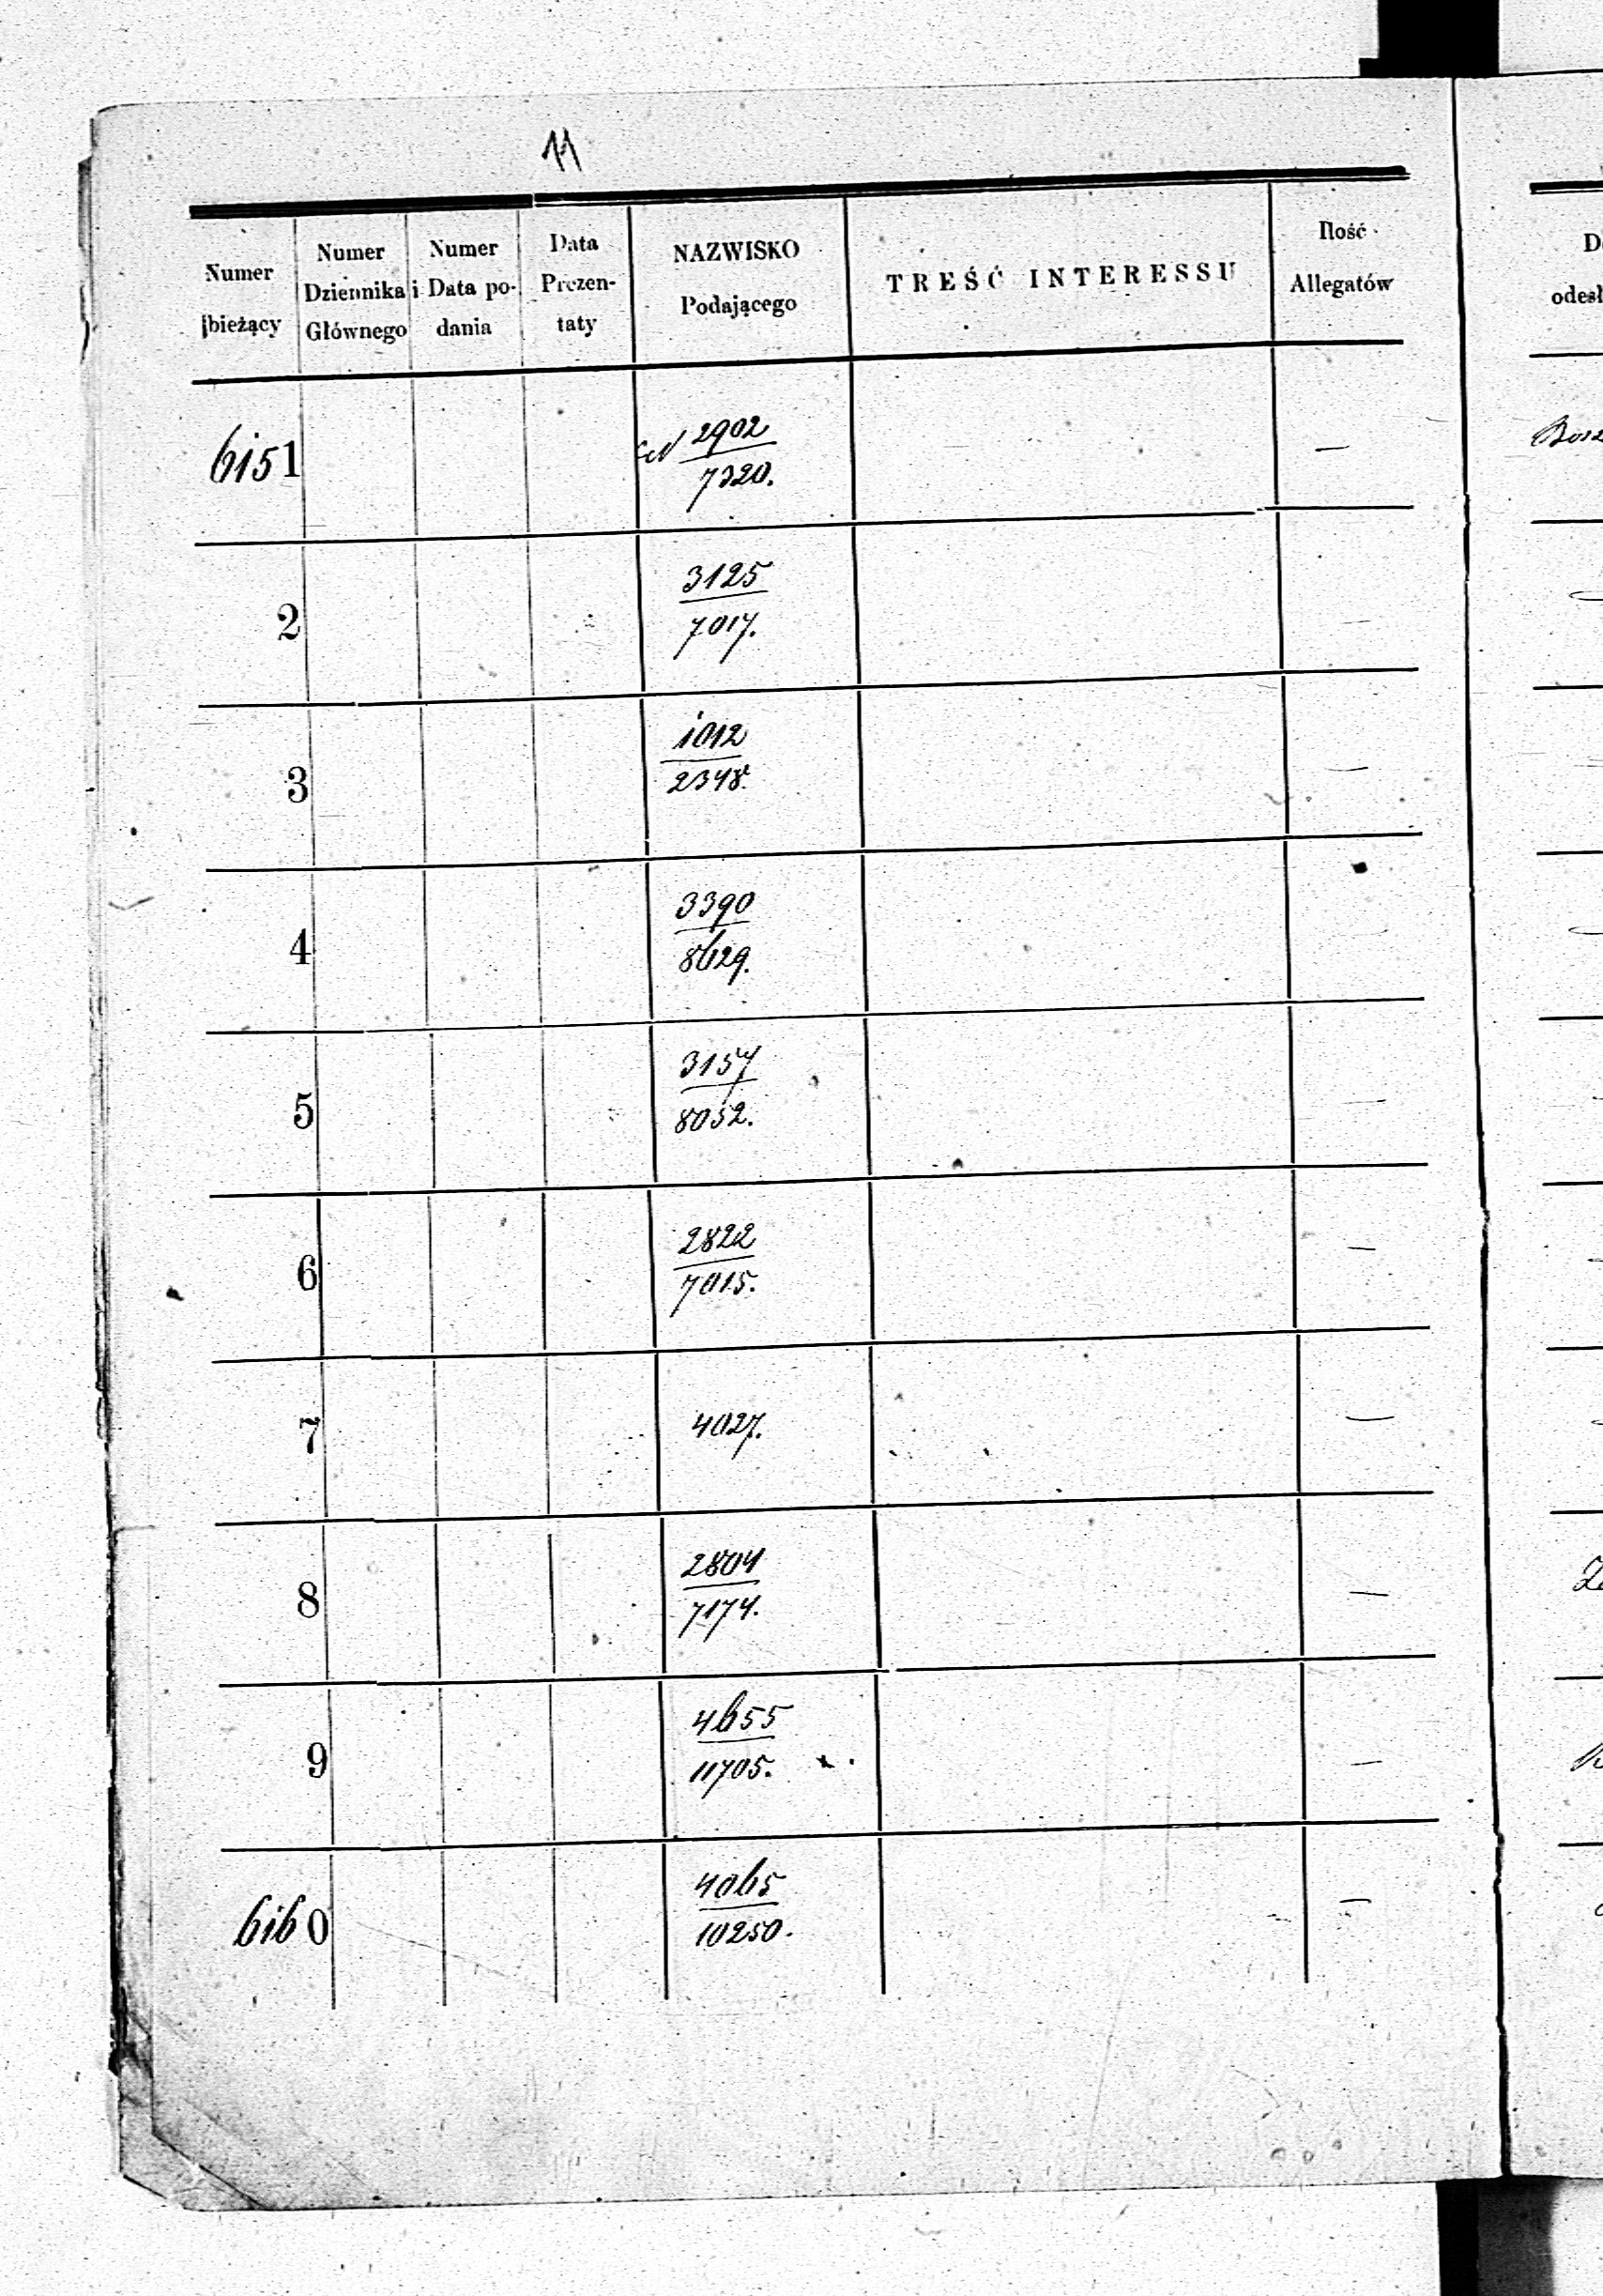 11
Numer bieżący
Numer Dziennika Głównego
Numer i Data podania
Data Prezentaty
NAZWISKO Podającego
TREŚĆ INTERESSU
Ilość Allegatów
6151
2902
7320.
—
2
3125
7017.
—
3
1012
2348.
—
4
3390
8629.
—
5
3157
8052.
—
6
2822
7015.
—
7
4027.
—
8
2804
7174.
—
9
4655
11705.
—
6160
4065
10250.
—